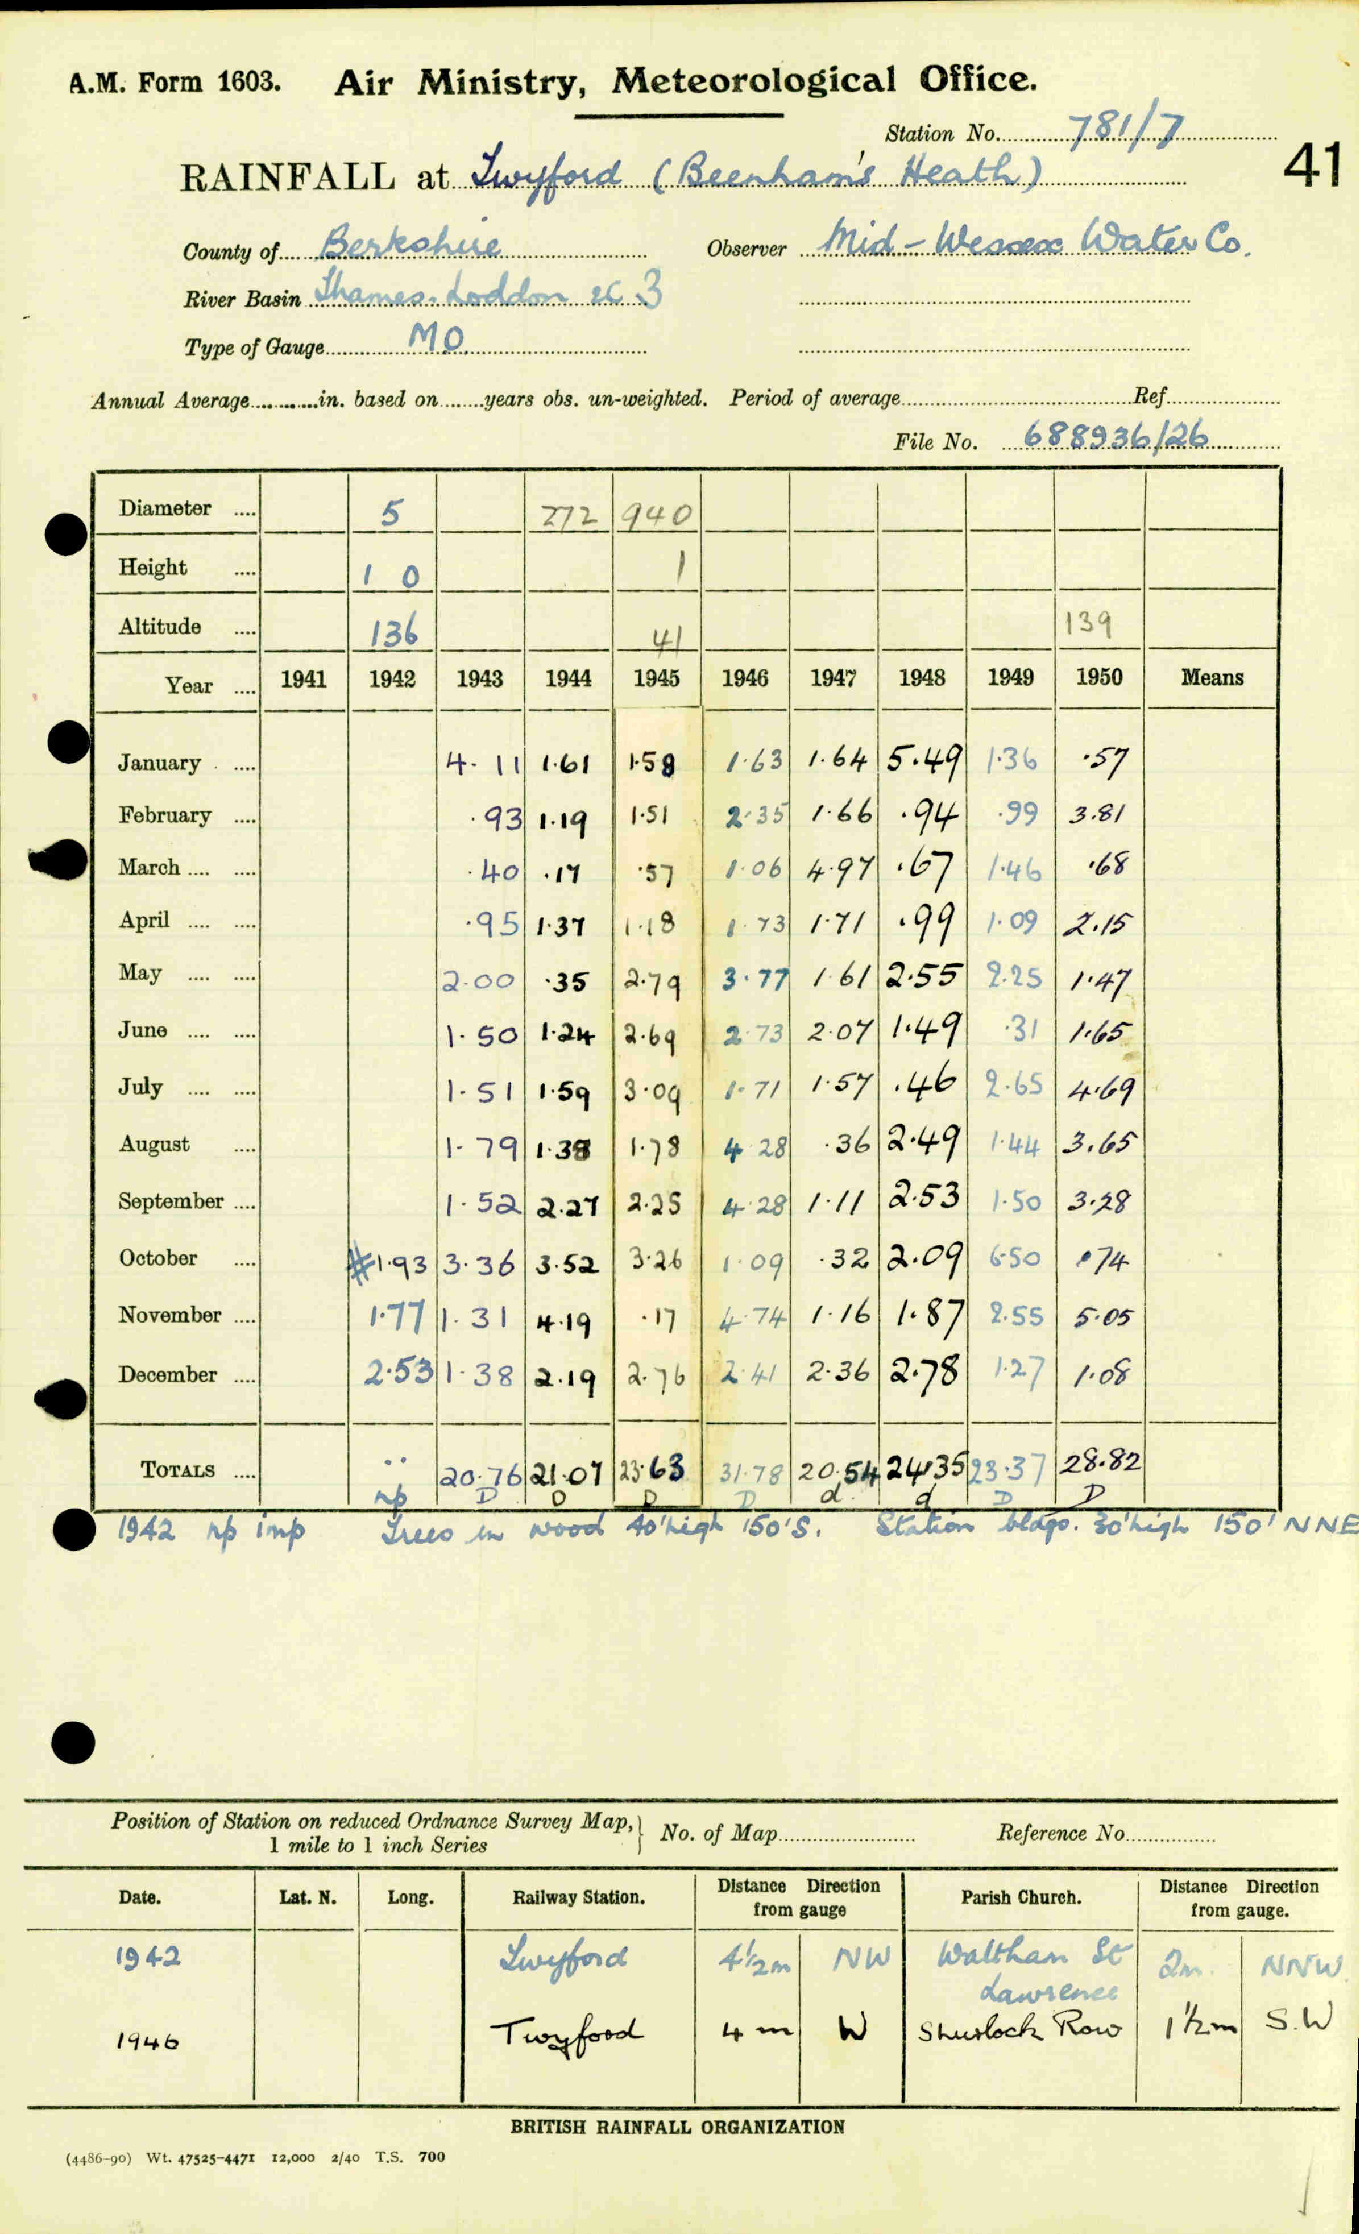 A.M. Form 1603. Air Ministry, Meteorological Office.
Station No. 781/7
41
RAINFALL at Twyford (Beenham's Heath)
County of Berkshire Observer Mid-Wessex Water Co.
River Basin Thames-Loddon 2C 3
Type of Gauge MO
Annual Average in. based on years obs. un-weighted. Period of average Ref
File No. 688936/26
Diameter .... 5 272 940
Height .... 1 0 1
Altitude .... 136 41 139
Year .... 1941 1942 1943 1944 1945 1946 1947 1948 1949 1950 Means
January .... 4.11 1.61 1.58 1.63 1.64 5.49 1.36 .57
February .... .93 1.19 1.51 2.35 1.66 .94 .99 3.81
March .... .... .40 .17 .57 1.06 4.97 .67 1.46 .68
April .... .... .95 1.37 1.18 1.73 1.71 .99 1.09 2.15
May .... .... 2.00 .35 2.79 3.77 1.61 2.55 2.25 1.47
June .... .... 1.50 1.24 2.69 2.73 2.07 1.49 .31 1.65
July .... .... 1.51 1.59 3.09 1.71 1.57 .46 2.65 4.69
August .... 1.79 1.38 1.78 4.28 .36 2.49 1.44 3.65
September .... 1.52 2.27 2.25 4.28 1.11 2.53 1.50 3.28
October .... #1.93 3.36 3.52 3.26 1.09 .32 2.09 6.50 .74
November .... 1.77 1.31 4.19 .17 4.74 1.16 1.87 2.55 5.05
December .... 2.53 1.38 2.19 2.76 2.41 2.36 2.78 1.27 1.08
TOTALS .... .. 20.76 21.07 23.63 31.78 20.54 24.35 23.37 28.82
np D D D D d d D D
1942 np imp Trees in wood 40' high 150' S. Station bldgs. 30' high 150' NNE
Position of Station on reduced Ordnance Survey Map, } No. of Map Reference No.
1 mile to 1 inch Series
Date. Lat. N. Long. Railway Station. Distance Direction from gauge Parish Church. Distance Direction from gauge.
1942 Twyford 4½m NW Waltham St Lawrence 2m. NNW.
1946 Twyford 4 m W Shurlock Row 1½m S.W
BRITISH RAINFALL ORGANIZATION
(4486-90) Wt. 47525-4471 12,000 2/40 T.S. 700